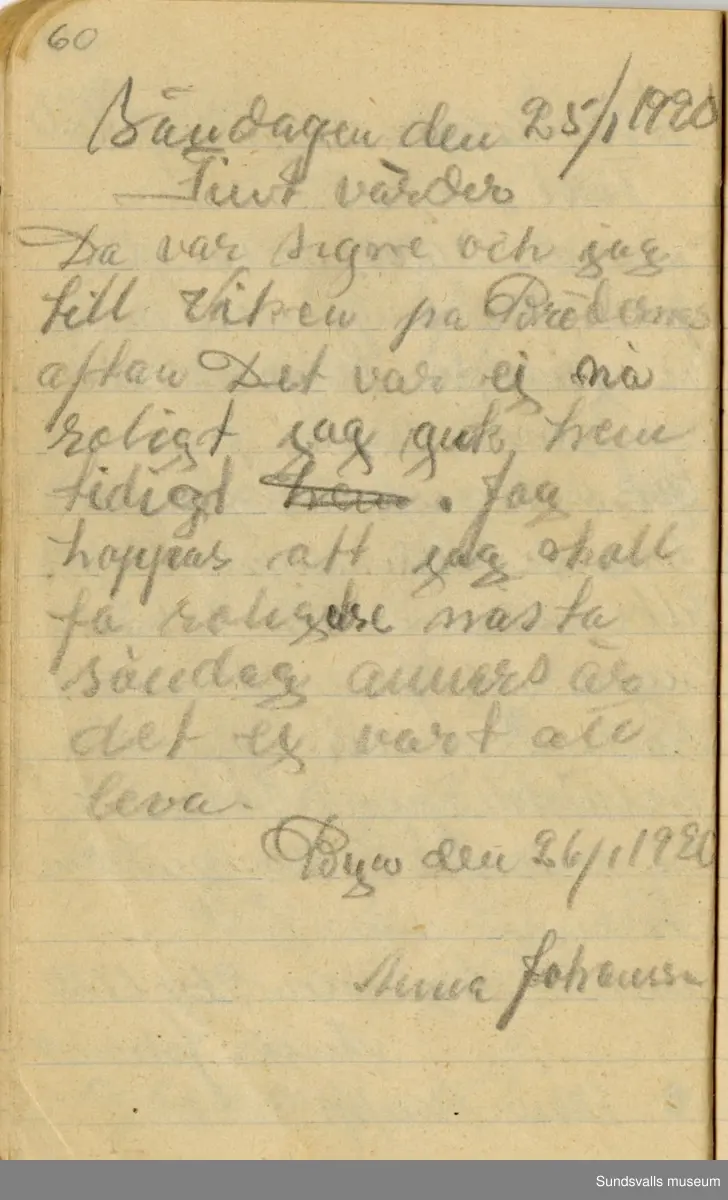 60
Söndagen den 25/1 1920
Fint värder
Da var Signe och jag
till Viken pa Brödernas
aftan Det var ej nå
roligt jag gik hem
tidigt hem. Jag
hoppas att jag skall
fa roligare nästa
söndag anners är
det ej vart att
leva.
den 26/1 1920
Anna Johansson
Sundsvalls museum